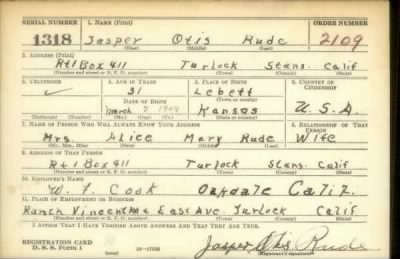 SERIAL NUMBER 1. NAME (Print) ORDER NUMBER
1318 Jasper Otis Rude 2109
(First) (Middle) (Last)
2. ADDRESS (Print)
Rt 1 Box 411 Turlock Stans. Calif
(Number and street or R. F. D. number) (Town) (County) (State)
3. TELEPHONE 4. AGE IN YEARS 5. PLACE OF BIRTH 6. COUNTRY OF CITIZENSHIP
✓ 31 Lebett
DATE OF BIRTH (Town or county)
March 7 1909 Kansas U.S.A.
(Mo.) (Day) (Yr.) (State or country)
7. NAME OF PERSON WHO WILL ALWAYS KNOW YOUR ADDRESS 8. RELATIONSHIP OF THAT PERSON
Mrs. Alice Mary Rude Wife
(Mr., Mrs., Miss) (First) (Middle) (Last)
9. ADDRESS OF THAT PERSON
Rt 1 Box 411 Turlock Stans. Calif
(Number and street or R. F. D. number) (Town) (County) (State)
10. EMPLOYER'S NAME
Cook Oakdale Calif.
11. PLACE OF EMPLOYMENT OR BUSINESS
Ranch East Ave. Turlock Calif
(Number and street or R. F. D. number) (Town) (County) (State)
I AFFIRM THAT I HAVE VERIFIED ABOVE ANSWERS AND THAT THEY ARE TRUE.
REGISTRATION CARD
D. S. S. Form 1 Jasper Otis Rude
(Registrant's signature)